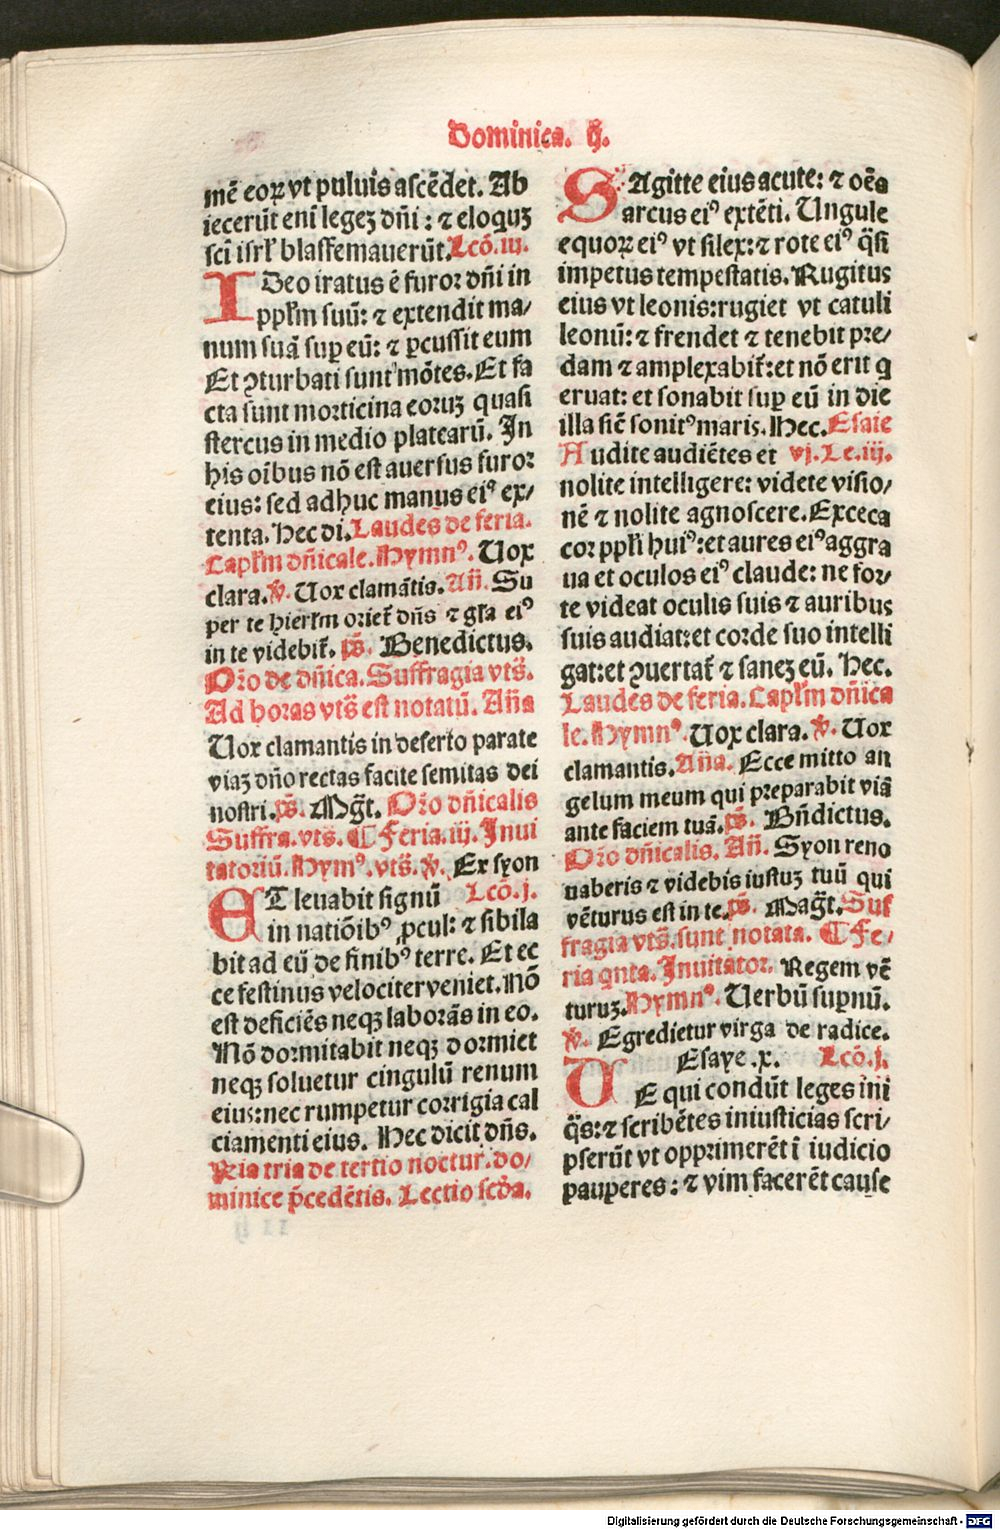 Dominica. ij.
mē eoꝝ vt puluis ascēdet. Ab
iecerūt eni legeʒ dn̄i : ⁊ eloquʒ
sci isrl' blasfemauerūt. Lcō. iij.
IDeo iratus ē furor dn̄i in
ppl'm suū: ⁊ extendit ma/
num suā suꝑ eū: ⁊ ꝑcussit eum
Et ꝯturbati sunt mōtes. Et fa
cta sunt morticina eoruʒ quasi
stercus in medio platearū. In
his oībus nō est auersus furor
eius: sed adhuc manus eiꝰ ex/
tenta. Hec di. Laudes de feria.
Capl'm dn̄icale. Hymnꝰ. Uox
clara. ℣. Uox clamātis. An̄. Su
per te hierl'm oriet̄ dn̄s ⁊ gl'a eiꝰ
in te videbit̄. ps̄. Benedictus.
Or̄o de dn̄ica. Suffragia vts̄.
Ad horas vts̄ est notatū. An̄a
Uox clamantis in deserto parate
viaʒ dn̄o rectas facite semitas dei
nostri. ps̄. Mḡt. Or̄o dn̄icalis
Suffra. vts̄. ¶ Feria. iij. Inui
tatoriū. Hymꝰ. vts̄. ℣. Ex syon
ET leuabit signū Lcō. j.
in natiōibꝰ ꝓcul: ⁊ sibila
bit ad eū de finibꝰ terre. Et ec
ce festinus velociter veniet. Nō
est deficiēs neqꝫ laborās in eo.
Nō dormitabit neqꝫ dormiet
neqꝫ soluetur cingulū renum
eius: nec rumpetur corrigia cal
ciamenti eius. Hec dicit dn̄s.
Ria tria de tertio noctur. do/
minice p̄cedētis. Lectio scd'a.
SAgitte eius acute: ⁊ oēs
arcus eiꝰ extēti. Ungule
equoꝝ eiꝰ vt silex: ⁊ rote eiꝰ q̄si
impetus tempestatis. Rugitus
eius vt leonis: rugiet vt catuli
leonū: ⁊ frendet ⁊ tenebit pre/
dam ⁊ amplexabit̄: et nō erit q
eruat: et sonabit suꝑ eū in die
illa sic̄ sonitꝰ maris. Hec. Esaie
Audite audiētes et vj. Le. iij.
nolite intelligere: videte visio/
nē ⁊ nolite agnoscere. Exceca
cor ppl'i huiꝰ: et aures eiꝰ aggra
ua et oculos eiꝰ claude: ne for/
te videat oculis suis ⁊ auribus
suis audiat: et corde suo intelli
gat: et ꝯuertat̄ ⁊ saneʒ eū. Hec.
Laudes de feria. Capl'm dn̄ica
le. Hymnꝰ. Uox clara. ℣. Uox
clamantis. An̄a. Ecce mitto an
gelum meum qui preparabit viā
ante faciem tuā. ps̄. Bn̄dictus.
Or̄o dn̄icalis. An̄. Syon reno
uaberis ⁊ videbis iustuʒ tuū qui
vēturus est in te. ps̄. Magt̄. Suf
fragia vts̄. sunt notata. ¶ Fe/
ria qnta. Inuitator. Regem vē
turuʒ. Hymnꝰ. Uerbū suꝑnū.
℣. Egredietur virga de radice.
Esaye. x. Lcō. j.
UE qui condūt leges ini
q̄s: ⁊ scribētes iniusticias scri/
pserūt vt opprimerēt ī iudicio
pauperes: ⁊ vim facerēt cause
Digitalisierung gefördert durch die Deutsche Forschungsgemeinschaft - DFG